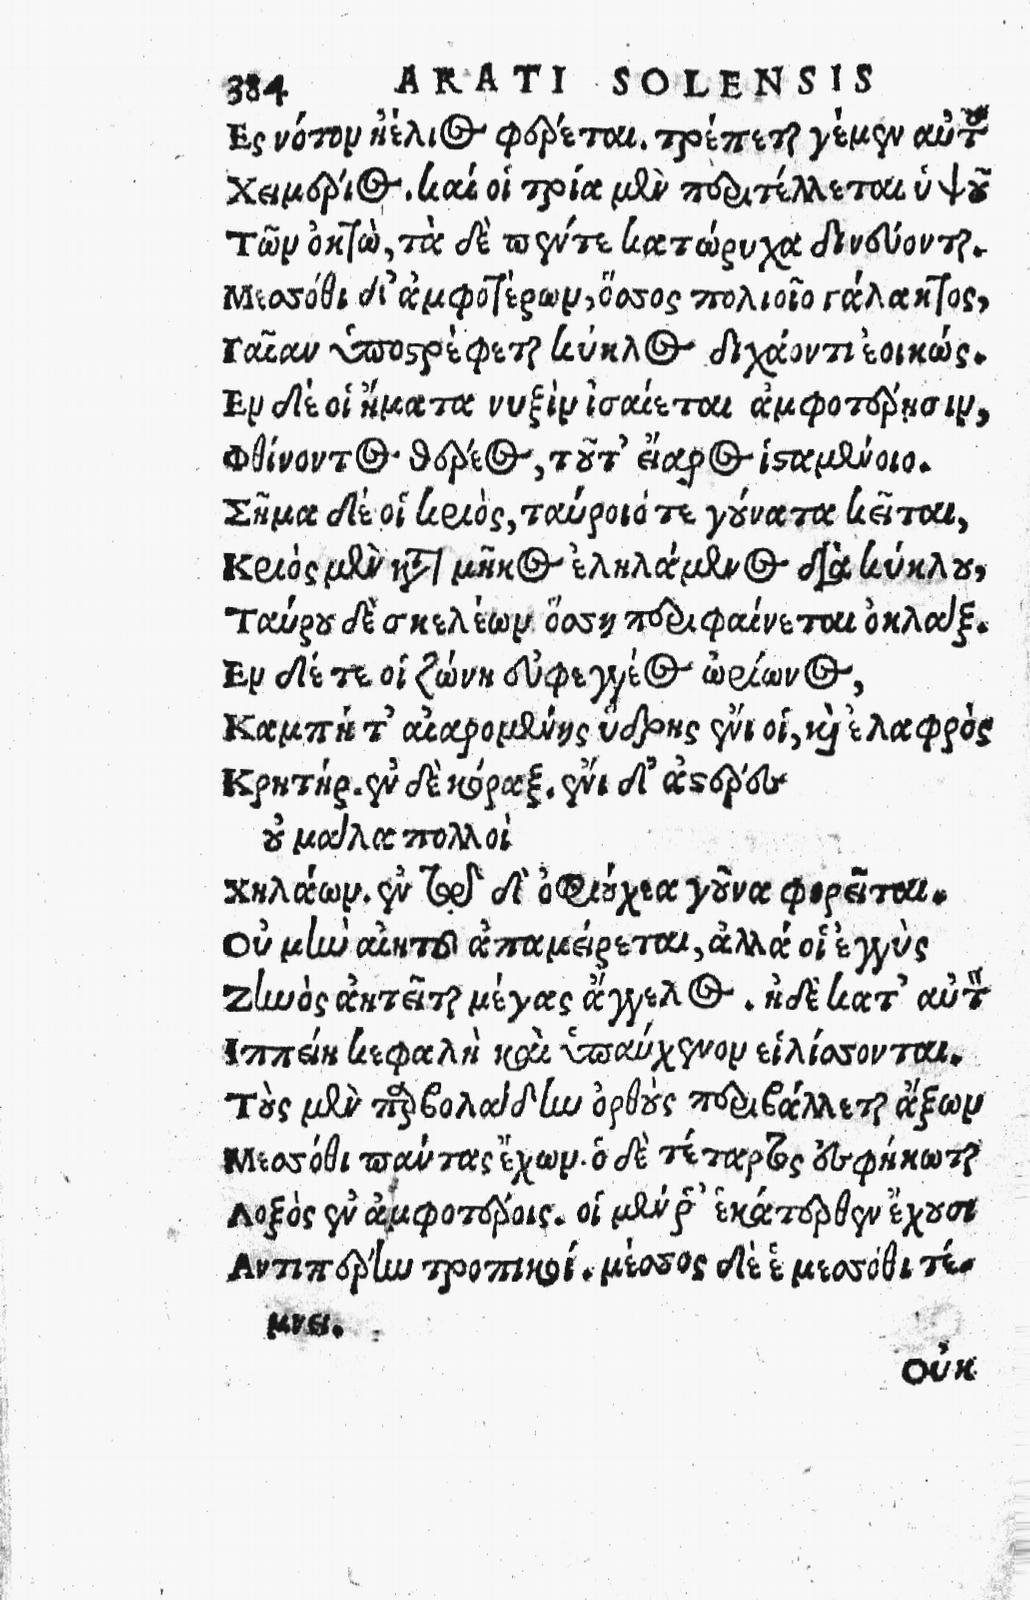 384 ARATI SOLENSIS
Ες νότον ἠέλιος φέρεται. τρέπεται γέμεν αὐτοῦ
Χειμέριος. καὶ οἱ τρία μὲν περιτέλλεται ὑψοῦ
Τῶν ὀκτὼ, τὰ δὲ πέντε κατώρυχα δινεύονται.
Μεσσόθι δ' ἀμφοτέρων, ὅσσος πολιοῖο γάλακτος,
Γαῖαν ὑποστρέφεται κύκλος διχάοντι ἐοικώς.
Εν δέ οἱ ἤματα νυξὶν ἰσαίεται ἀμφοτέρῃσιν,
Φθίνοντος θέρεος, τοῦτ' εἴαρος ἱσταμένοιο.
Σῆμα δέ οἱ κριὸς, ταύροιό τε γούνατα κεῖται,
Κριὸς μὲν κατὰ μῆκος ἐληλάμενος διὰ κύκλου,
Ταύρου δὲ σκελέων ὅσση περιφαίνεται ὀκλάξ.
Εν δέ τε οἱ ζώνη εὐφεγγέος ὠρίωνος,
Καμπή τ' αἰαρομένης ὕδρης ἔνι οἱ, καὶ ἐλαφρὸς
Κρητήρ. ἐν δὲ κόραξ. ἔνι δ' ἀστέρες
οὐ μάλα πολλοὶ
Χηλάων. ἐν τῷ δ' ὀφιούχεα γοῦνα φορεῖται.
Οὐ μὴν αἰητοῦ ἀπαμείρεται, ἀλλά οἱ ἐγγὺς
Ζηνὸς ἀητεῖται μέγας ἄγγελος. ἡ δὲ κατ' αὐτὸν
Ιππείη κεφαλὴ καὶ ὑπαύχενον εἱλίσσονται.
Τοὺς μὲν παρβολάδην ὀρθοὺς περιβάλλεται ἄξων
Μεσσόθι πάντας ἔχων. ὁ δὲ τέταρτος ἐσφήκωται
Λοξὸς ἐν ἀμφοτέροις. οἱ μέν ῥ' ἑκάτερθεν ἔχουσι
Αντιπέρην τροπικοί. μέσσος δὲ ἑ μεσσόθι τέ-
μνει.
Οὐκ